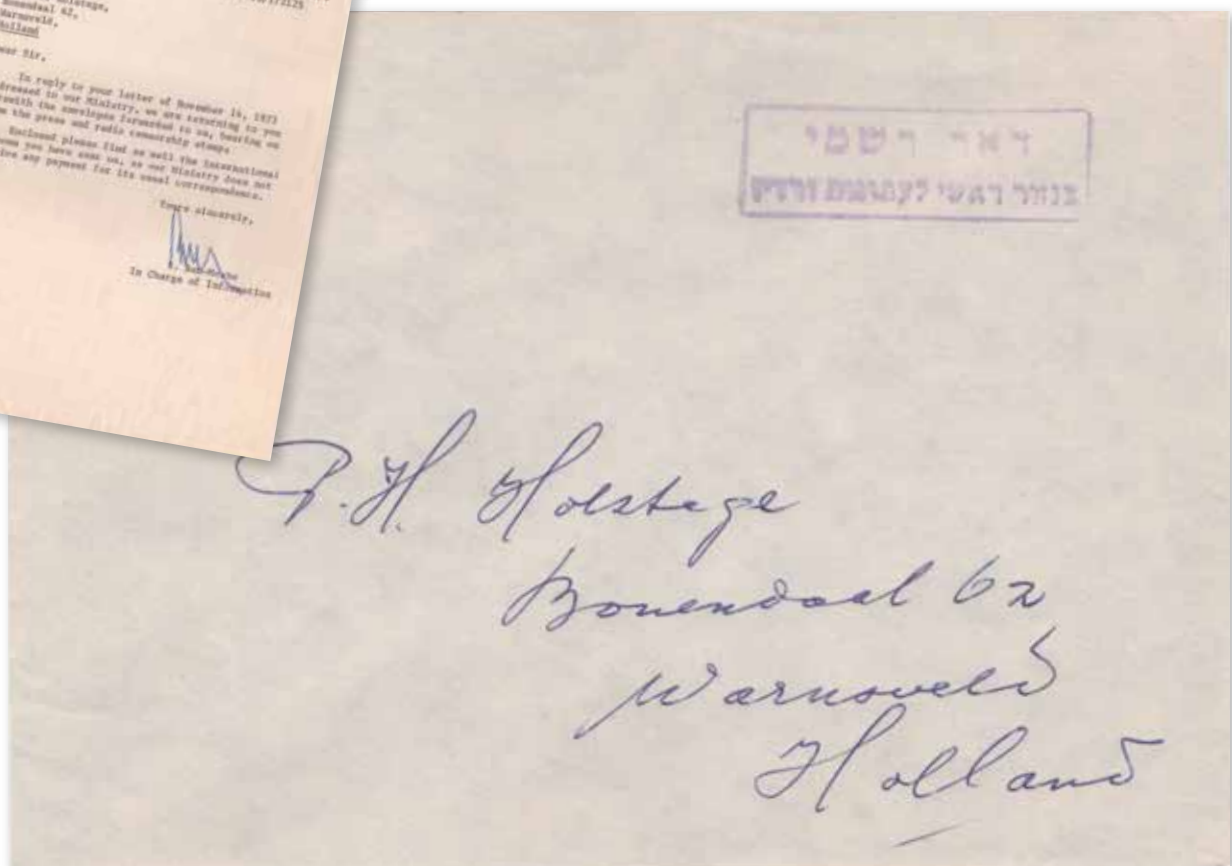 Warnsveld,
Holland
Dear Sir,
In reply to your letter of November 14, 1973
addressed to our Ministry, we are returning to you
herewith the envelopes forwarded to us, bearing on
them the press and radio censorship stamps
Enclosed please find as well the International
you have sent us, as our Ministry does not
any payment for its usual correspondence.
Yours sincerely,
In Charge of Information
דאר רשמי
צנזור ראשי לעתונות ורדיו
P.H. Holstege
Bonendaal 62
Warnsveld
Holland